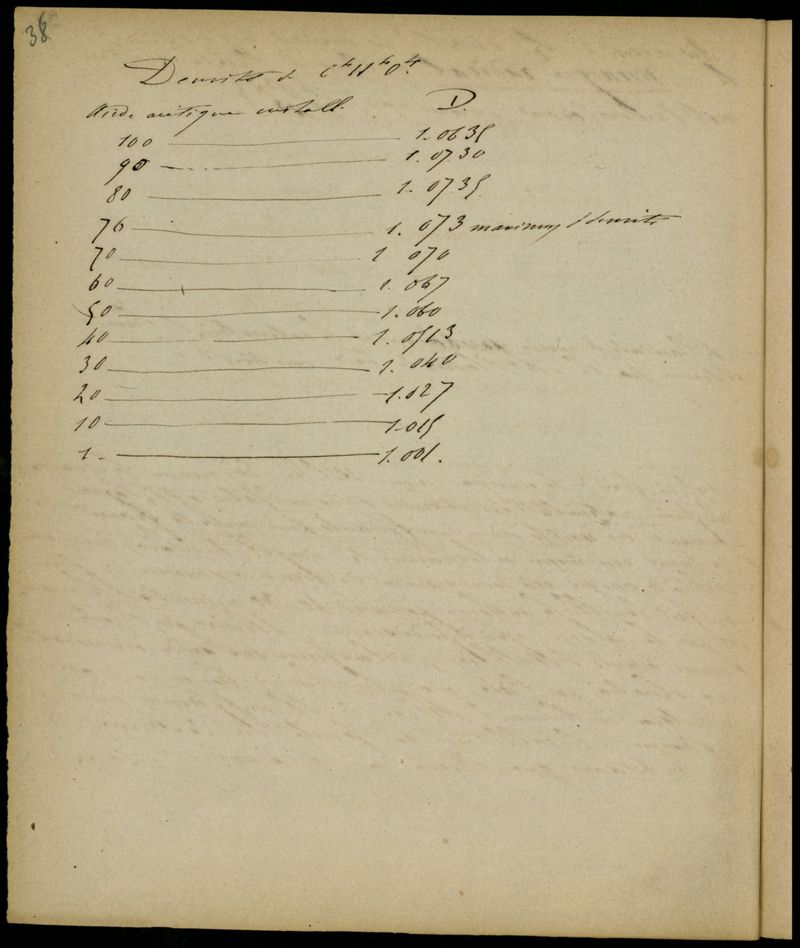 38
Densité de C⁴H⁴O⁴.
Acide acétique cristall. D
100 — 1.0635
90 — 1.0730
80 — 1.0735
76 — 1.073 maximum densité
70 — 1 070
60 — 1.067
50 — 1.060
40 — 1.0513
30 — 1.040
20 — 1.027
10 — 1.015
1 — 1.001.